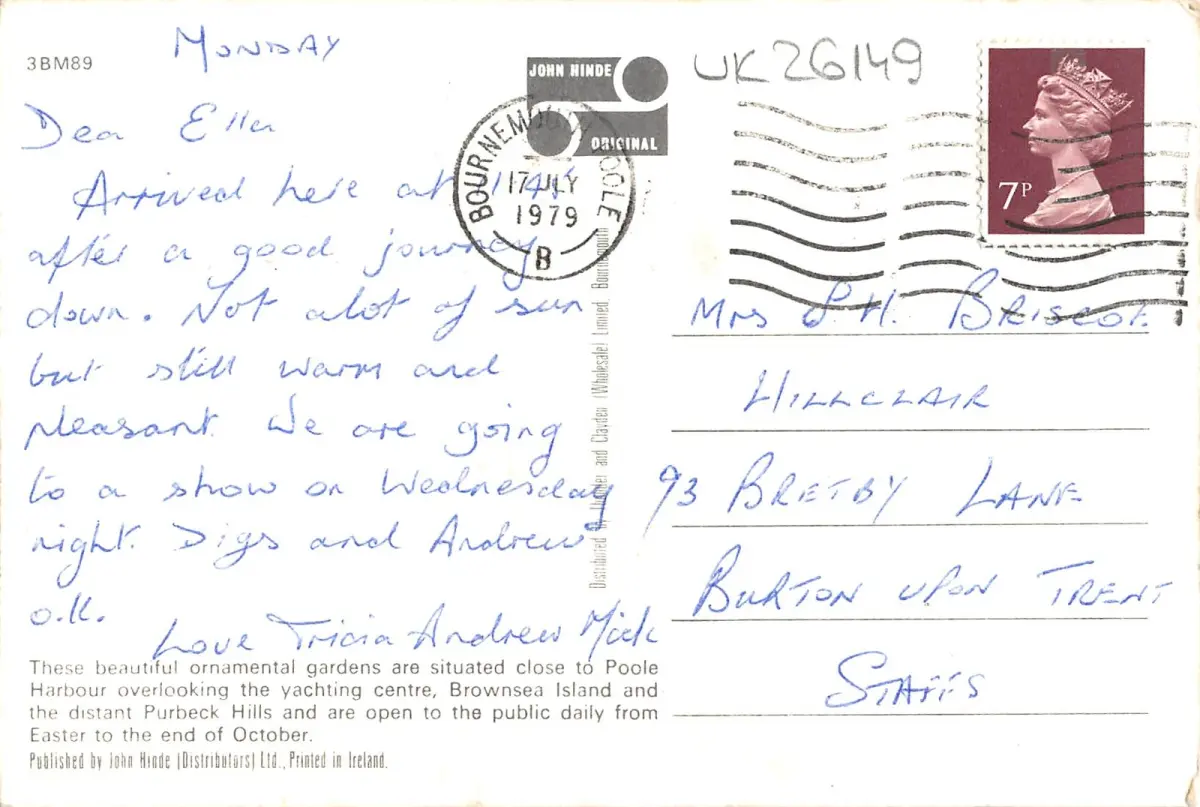 3BM89
MONDAY
Dear Ella
Arrived here at 1 45
after a good journey
down. Not alot of sun
but still warm and
pleasant. We are going
to a show on Wednesday
night. Digs and Andrew
o.k.
Love Tricia Andrew Mick
These beautiful ornamental gardens are situated close to Poole
Harbour overlooking the yachting centre, Brownsea Island and
the distant Purbeck Hills and are open to the public daily from
Easter to the end of October.
Published by John Hinde (Distributors) Ltd., Printed in Ireland.
JOHN HINDE
ORIGINAL
BOURNEMOUTH POOLE
17 JLY
1979
B
Distributed by and Clayden (Wholesale) Limited, Bournemouth
UK26149
7P
Mrs H. BRISCOE
HILLCLAIR
93 BRETBY LANE
BURTON UPON TRENT
STAFFS